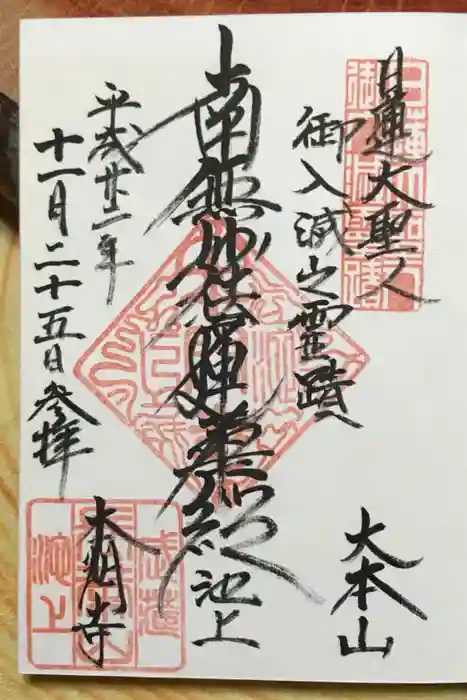 日蓮大聖人
御入滅之霊蹟
大本山
南無妙法蓮華経
池上
本門寺
平成廿二年
十一月二十五日参拝
池上